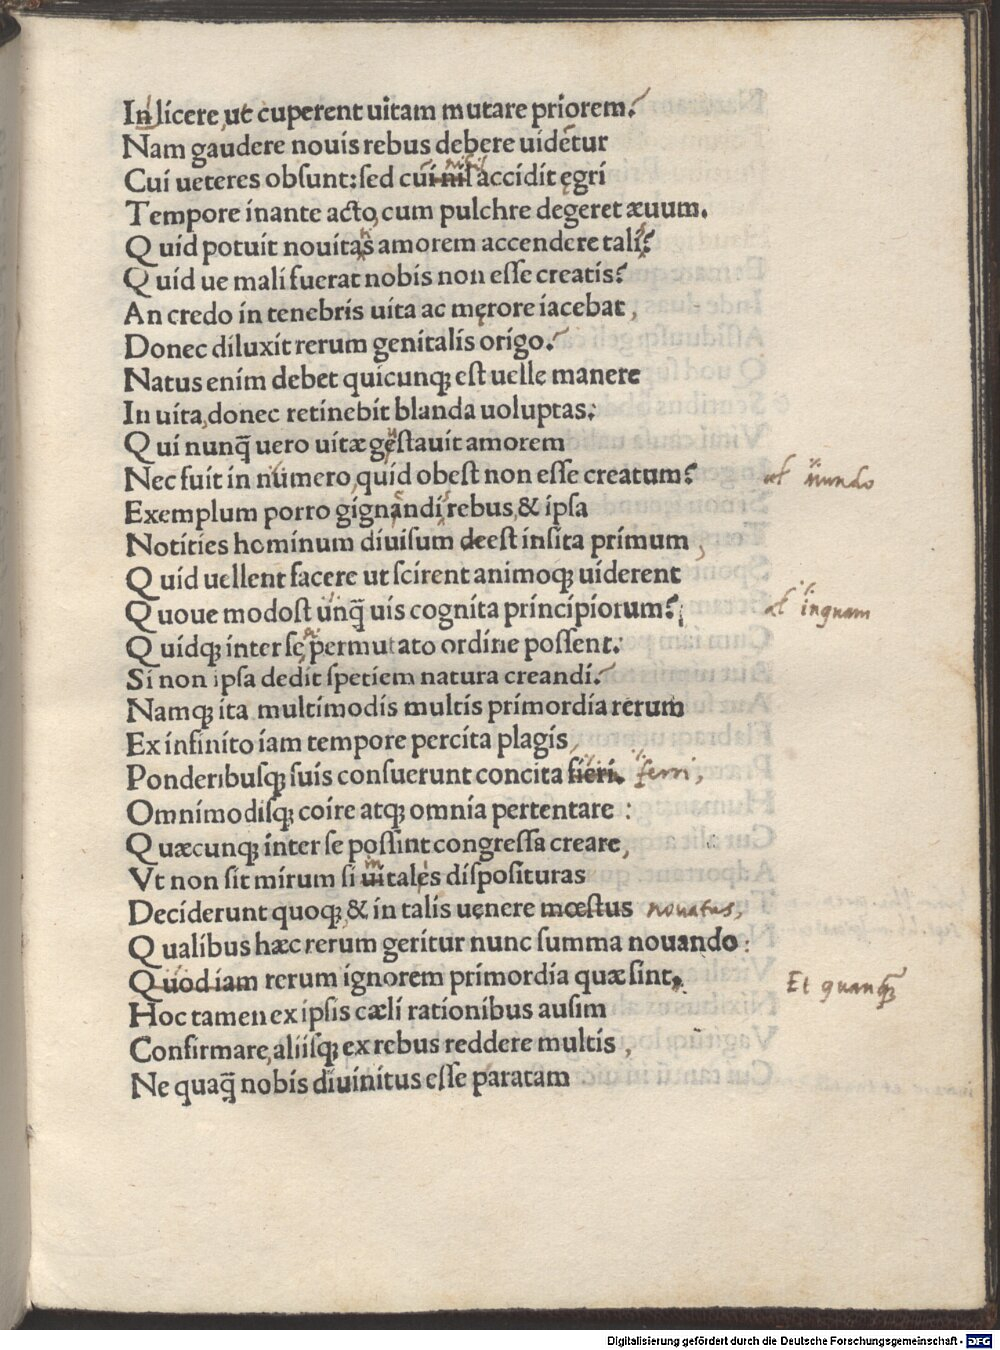 In licere ut cuperent uitam mutare priorem?
Nam gaudere nouis rebus debere uidetur
Cui ueteres obsunt: sed cui nil accidit ęgri
nihil
Tempore inante acto, cum pulchre degeret æuum.
Quid potuit nouitas amorem accendere tali?
Quid ue mali fuerat nobis non esse creatis?
An credo in tenebris uita ac męrore iacebat,
Donec diluxit rerum genitalis origo?
Natus enim debet quicunqꝫ est uelle manere
In uita, donec retinebit blanda uoluptas:
Qui nunq̄ uero uitæ gestauit amorem
Nec fuit in numero, quid obest non esse creatum? al mundo
Exemplum porro gignandi rebus, & ipsa
Notities hominum diuisum deest insita primum,
Quid uellent facere ut scirent animoqꝫ uiderent
Quoue modost unq̄ uis cognita principiorum? al inquam
Quidqꝫ inter se permutato ordine possent:
Si non ipsa dedit spetiem natura creandi?
Namqꝫ ita multimodis multis primordia rerum
Ex infinito iam tempore percita plagis
Ponderibusqꝫ suis consuerunt concita fieri. ferri,
Omnimodisqꝫ coire atqꝫ omnia pertentare:
Quæcunqꝫ inter se possint congressa creare,
Vt non sit mirum si uitales disposituras
in
Deciderunt quoqꝫ, & in talis uenere mœstus nouatus,
Qualibus hæc rerum geritur nunc summa nouando:
Quod iam rerum ignorem primordia quæ sint, Et quanqꝫ
Hoc tamen ex ipsis cæli rationibus ausim
Confirmare, aliisqꝫ ex rebus reddere multis,
Ne quaq̄ nobis diuinitus esse paratam
Digitalisierung gefördert durch die Deutsche Forschungsgemeinschaft - DFG